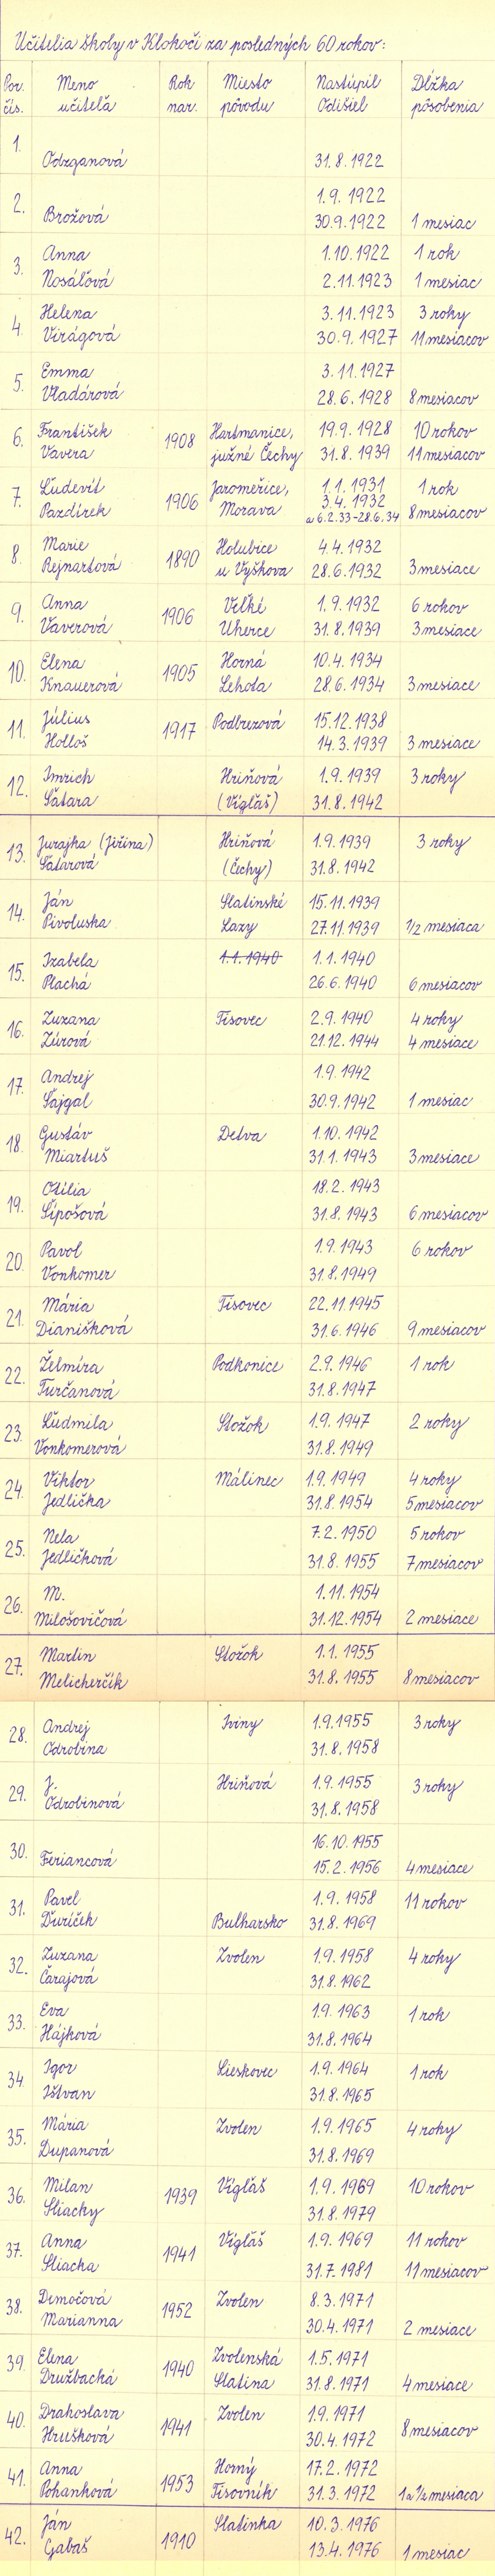 Učitelia školy v Klokoči za posledných 60 rokov:
Por. čís. Meno učiteľa Rok nar. Miesto pôvodu Nastúpil Odišiel Dĺžka pôsobenia
1.
Odzganová 31.8.1922
2. 1.9.1922
Brožová 30.9.1922 1 mesiac
3. Anna 1.10.1922 1 rok
Nosáľová 2.11.1923 1 mesiac
4. Helena 3.11.1923 3 roky
Virágová 30.9.1927 11 mesiacov
5. Emma 3.11.1927
Vladárová 28.6.1928 8 mesiacov
6. František 1908 Hartmanice, 19.9.1928 10 rokov
Vavera južné Čechy 31.8.1939 11 mesiacov
7. Ľudevít 1906 Jaroměřice, 1.1.1931 1 rok
Pazdírek Morava 3.4.1932 8 mesiacov
a 6.2.33-28.6.34
8. Marie 1890 Holubice 4.4.1932
Rejnartová u Vyškova 28.6.1932 3 mesiace
9. Anna 1906 Veľké 1.9.1932 6 rokov
Vaverová Uherce 31.8.1939 3 mesiace
10. Elena 1905 Horná 10.4.1934
Knauerová Lehota 28.6.1934 3 mesiace
11. Július 1917 Podbrezová 15.12.1938
Holloš 14.3.1939 3 mesiace
12. Imrich Hriňová 1.9.1939 3 roky
Šatara (Vígľáš) 31.8.1942
13. Jurajka (Jiřina) Hriňová 1.9.1939 3 roky
Šatarová (Čechy) 31.8.1942
14. Ján Slatinské 15.11.1939
Pivoluska Lazy 27.11.1939 1/2 mesiaca
15. Izabela 1.1.1940 1.1.1940
Plachá 26.6.1940 6 mesiacov
16. Zuzana Tisovec 2.9.1940 4 roky
Zúrová 21.12.1944 4 mesiace
17. Andrej 1.9.1942
Šajgal 30.9.1942 1 mesiac
18. Gustáv Detva 1.10.1942
Miartuš 31.1.1943 3 mesiace
19. Otília 18.2.1943
Šípošová 31.8.1943 6 mesiacov
20. Pavol 1.9.1943 6 rokov
Vonkomer 31.8.1949
21. Mária Tisovec 22.11.1945
Dianišková 31.6.1946 9 mesiacov
22. Želmíra Podkonice 2.9.1946 1 rok
Turčanová 31.8.1947
23. Ľudmila Stožok 1.9.1947 2 roky
Vonkomerová 31.8.1949
24. Viktor Málinec 1.9.1949 4 roky
Jedlička 31.8.1954 5 mesiacov
25. Nela 7.2.1950 5 rokov
Jedličková 31.8.1955 7 mesiacov
26. M. 1.11.1954
Milošovičová 31.12.1954 2 mesiace
27. Martin Stožok 1.1.1955
Melicherčík 31.8.1955 8 mesiacov
28. Andrej Iviny 1.9.1955 3 roky
Odrobina 31.8.1958
29. J. Hriňová 1.9.1955 3 roky
Odrobinová 31.8.1958
30. 16.10.1955
Feriancová 15.2.1956 4 mesiace
31. Pavel 1.9.1958 11 rokov
Ďuríček Bulharsko 31.8.1969
32. Zuzana Zvolen 1.9.1958 4 roky
Čarajová 31.8.1962
33. Eva 1.9.1963 1 rok
Hájková 31.8.1964
34. Igor Lieskovec 1.9.1964 1 rok
Ištvan 31.8.1965
35. Mária Zvolen 1.9.1965 4 roky
Dupanová 31.8.1969
36. Milan 1939 Vígľáš 1.9.1969 10 rokov
Sliacky 31.8.1979
37. Anna 1941 Vígľáš 1.9.1969 11 rokov
Sliacka 31.7.1981 11 mesiacov
38. Demočová 1952 Zvolen 8.3.1971
Marianna 30.4.1971 2 mesiace
39. Elena 1940 Zvolenská 1.5.1971
Družbacká Slatina 31.8.1971 4 mesiace
40. Drahoslava 1941 Zvolen 1.9.1971 8 mesiacov
Hrušková 30.4.1972
41. Anna 1953 Horný 17.2.1972
Pohanková Tisovník 31.3.1972 1 a 1/2 mesiaca
42. Ján 1910 Slatinka 10.3.1976
Gabaš 13.4.1976 1 mesiac